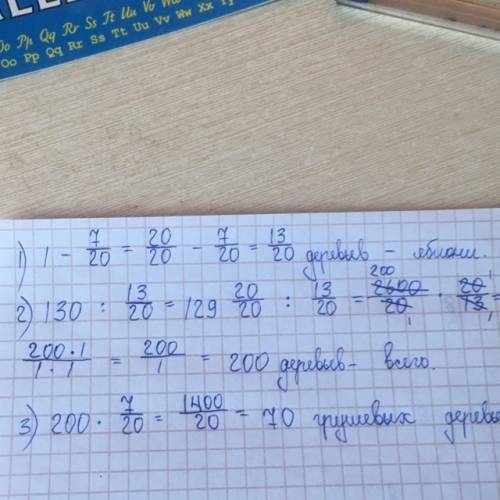 Oo Pp Qq Rr Ss Tt Uu Vv Ww
Oo Pp Qq Rr Ss Tt Uu Vv Ww Xx Yy
1) 1 - 7/20 = 20/20 - 7/20 = 13/20 деревыв - яблони.
2) 130 : 13/20 = 129 20/20 : 13/20 = 2600/20 · 20/13
200·1/1·1 = 200/1 = 200 деревыв - всего.
3) 200 · 7/20 = 1400/20 = 70 грушевых